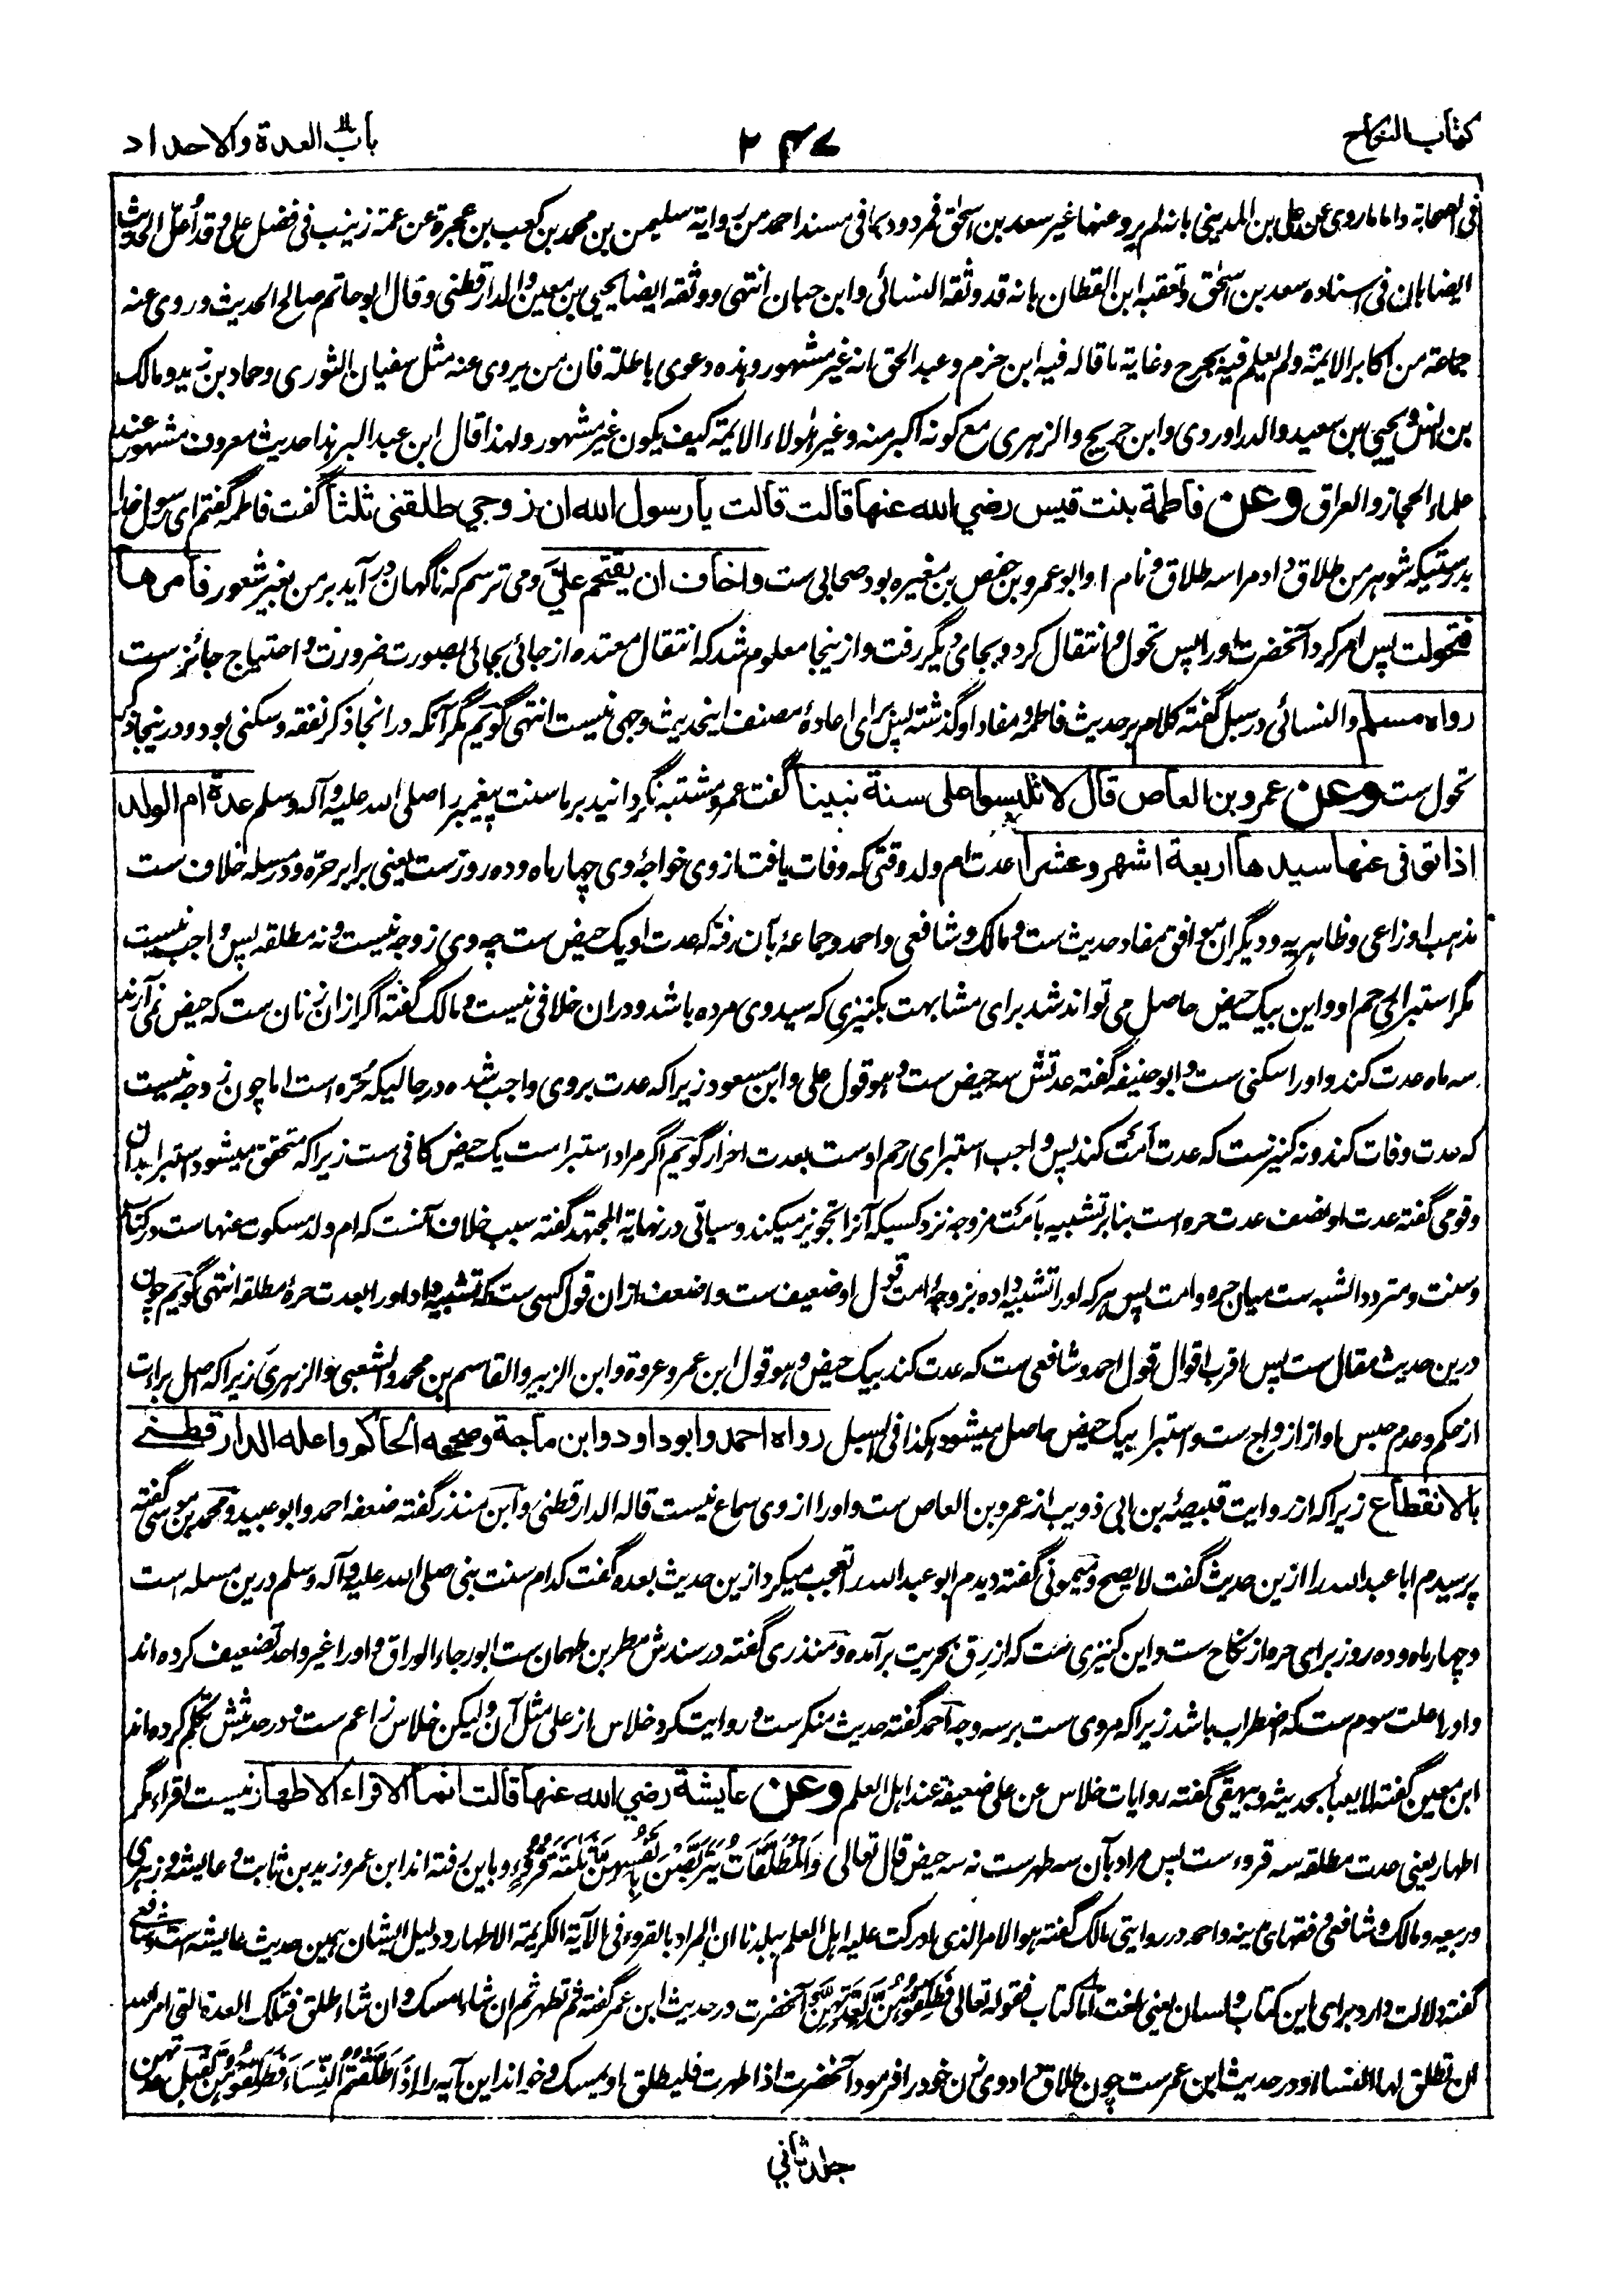 كتاب النكاح
٢٣٧
باب العدة والاحداد
فی الصحابة واما ما روی عن علی بن المدینی بانه لم یرو عنها غیر سعد بن اسحٰق فمردود بما فی مسند احمد من روایة سلیمن بن محمد بن کعب بن عجرة عن عمته زینب فی فضل علی وقد اُعلّ الحدیث
ایضا بان فی اسناده سعد بن اسحٰق وتعقبه ابن القطان بانه قد وثقه النسائی وابن حبان انتهی ووثقه ایضا یحیی بن معین والدارقطنی وقال ابو حاتم صالح الحدیث وروی عنه
جماعة من اکابر الایمة ولم یعلم فیه بجرح وغایة ما قاله فیه ابن حزم وعبد الحق انه غیر مشهور وهذه دعوی باطلة فان من یروی عنه مثل سفیان الثوری وحماد بن زید ومالک
بن انس ویحیی بن سعید والدراوردی وابن جریج والزهری مع کونه اکبر منه وغیر هٰولاء الایمة کیف یکون غیر مشهور ولهذا قال ابن عبد البر هذا حدیث معروف مشهور عند
علماء الحجاز والعراق وعن فاطمة بنت قیس رضي الله عنها قالت قالت یا رسول الله ان زوجي طلقنی ثلثا گفت فاطمه گفتم ای رسول خدا
بدرستیکه شوهر من طلاق داد مرا سه طلاق ونام او ابو عمرو بن حفص بن مغیره بود صحابی ست واخاف ان یقتحم علیّ ومی ترسم که ناگهان در آید بر من بغیر شعور فامرها
فتحولت پس امر کرد آنحضرت او را پس تحول وانتقال کرد وبجای دیگر رفت وازینجا معلوم شد که انتقال معتده از جائی بجائی بصورت ضرورت واحتیاج جائز ست
رواه مسلم والنسائی در سبل گفته کلام بر حدیث فاطمه ومفاد او گذشته پس برای اعادهٔ مصنف اینحدیث وجهی نیست انتهی گویم مگر آنکه در انجا ذکر نفقه وسکنی بود ودرینجا ذکر
تحول ست وعن عمرو بن العاص قال لا تلبسوا علی سنة نبینا گفت عمرو مشتبه نگردانید بر ما سنت پیغمبر را صلی الله علیه وآله وسلم عدة ام الولد
اذا توفی عنها سیدها اربعة اشهر وعشرا عدت ام ولد وقتیکه وفات یافت از وی خواجهٔ وی چهار ماه وده روز ست یعنی برابر حرّه ودر مسئله خلاف ست
مذهب اوزاعی وظاهریه ودیگران موافق مفاد حدیث ست ومالک وشافعی واحمد وجماعهٔ بآن رفته که عدت او یک حیض ست چه وی زوجه نیست ونه مطلقه پس واجب نیست
مگر استبرای رحم او واین بیک حیض حاصل می تواند شد برای مشابهت بکنیزی که سید وی مرده باشد ودران خلافی نیست ومالک گفته اگر ازان زنان ست که حیض نمی آرند
سه ماه عدت کند واو را سکنی ست وابو حنیفه گفته عدتش سه حیض ست وهو قول علی وابن مسعود زیرا که عدت بروی واجب شده درحالیکه حُرّه است اما چون زوجه نیست
که عدت وفات کند ونه کنیز ست که عدت اَمَت کند پس واجب استبرای رحم اوست بعدت احرار گویم اگر مراد استبرا ست یک حیض کافی ست زیرا که متحقق میشود استبرا بدان
وقومی گفته عدت او نصف عدت حره است بنا بر تشبیه باَمَت مزوجه نزد کسیکه آنرا تجویز میکند وسیاتی در نهایة المجتهد گفته سبب خلاف آنست که ام ولد مسکوت عنها ست در کتاب
وسنت ومتردد الشبه ست میان حره وامت پس هر که او را تشبیه داده بزوجهٔ امت قول او ضعیف ست واضعف ازان قول کسی ست که تشبیه داد او را بعدت حرهٔ مطلقه انتهی گویم چون
درین حدیث مقال ست پس اقرب اقوال قول احمد وشافعی ست که عدت کند بیک حیض وهو قول ابن عمر وعروة وابن الزبیر والقاسم بن محمد والشعبی والزهری زیرا که اصل براءت
از حکم وعدم حبس او از ازواج ست واستبرا بیک حیض حاصل میشود هکذا فی السبل رواه احمد وابو داود وابن ماجة وصححه الحاکم واعله الدارقطنے
بالانقطاع زیرا که از روایت قبیصهٔ بن ابی ذویب از عمرو بن العاص ست واو را از وی سماع نیست قاله الدارقطنی وابن منذر گفته ضعفه احمد وابو عبید ومحمد بن موسی گفته
پرسیدم ابا عبد الله را ازین حدیث گفت لا یصح ومیمونی گفته دیدم ابو عبد الله را تعجب میکرد ازین حدیث بعده گفت کدام سنت نبی صلی الله علیه وآله وسلم درین مسئله است
وچهار ماه وده روز برای حره از نکاح ست واین کنیزی ست که از رِق بحریت برآمده ومنذری گفته در سندش مطر بن طهمان ست ابو رجاء الوراق واو را غیر واحد تضعیف کرده اند
واو را علت سوم ست که اضطراب باشد زیرا که مروی ست بر سه وجه احمد گفته حدیث منکر ست وروایت کرد خلاس از علی مثل آن ولیکن خلاس زاعم ست ودر حدیثش تکلم کرده اند
ابن معین گفته لا یعبأ بحدیثه وبیهقی گفته روایات خلاس عن علی ضعیفة عند اهل العلم وعن عایشة رضي الله عنها قالت انما الاقراء الاطهار نیست اقراء مگر
اطهار یعنی عدت مطلقه سه قروء ست پس مراد بآن سه طهر ست نه سه حیض قال تعالی وَالْمُطَلَّقَاتُ یَتَرَبَّصْنَ بِاَنْفُسِهِنَّ ثَلٰثَةَ قُرُوْءٍ وباین رفته اند ابن عمر وزید بن ثابت وعایشه وزهری
وربیعه ومالک وشافعی وفقهای مدینه واحمد در روایتی مالک گفته هو الامر الذی ادرکت علیه اهل العلم ببلدنا ان المراد بالقروء فی الآیة الکریمة الاطهار ودلیل ایشان همین حدیث عایشه است وشافعی
گفته دلالت دارد برای این کتاب ولسان یعنی لغت اما کتاب فقوله تعالی فَطَلِّقُوْهُنَّ لِعِدَّتِهِنَّ آنحضرت در حدیث ابن عمر گفته ثم تطهر ثم ان شاء امسک وان شاء طلق فتلک العدة التی امر الله
ان تطلق لها النساء ودر حدیث ابن عمر ست چون طلاق داد وی زن خود را فرمود آنحضرت اذا طهرت فلیطلق او یمسک وخواند این آیه را اِذَا طَلَّقْتُمُ النِّسَاءَ فَطَلِّقُوْهُنَّ لِقُبُلِ عِدَّتِهِنَّ
جلد ثانی